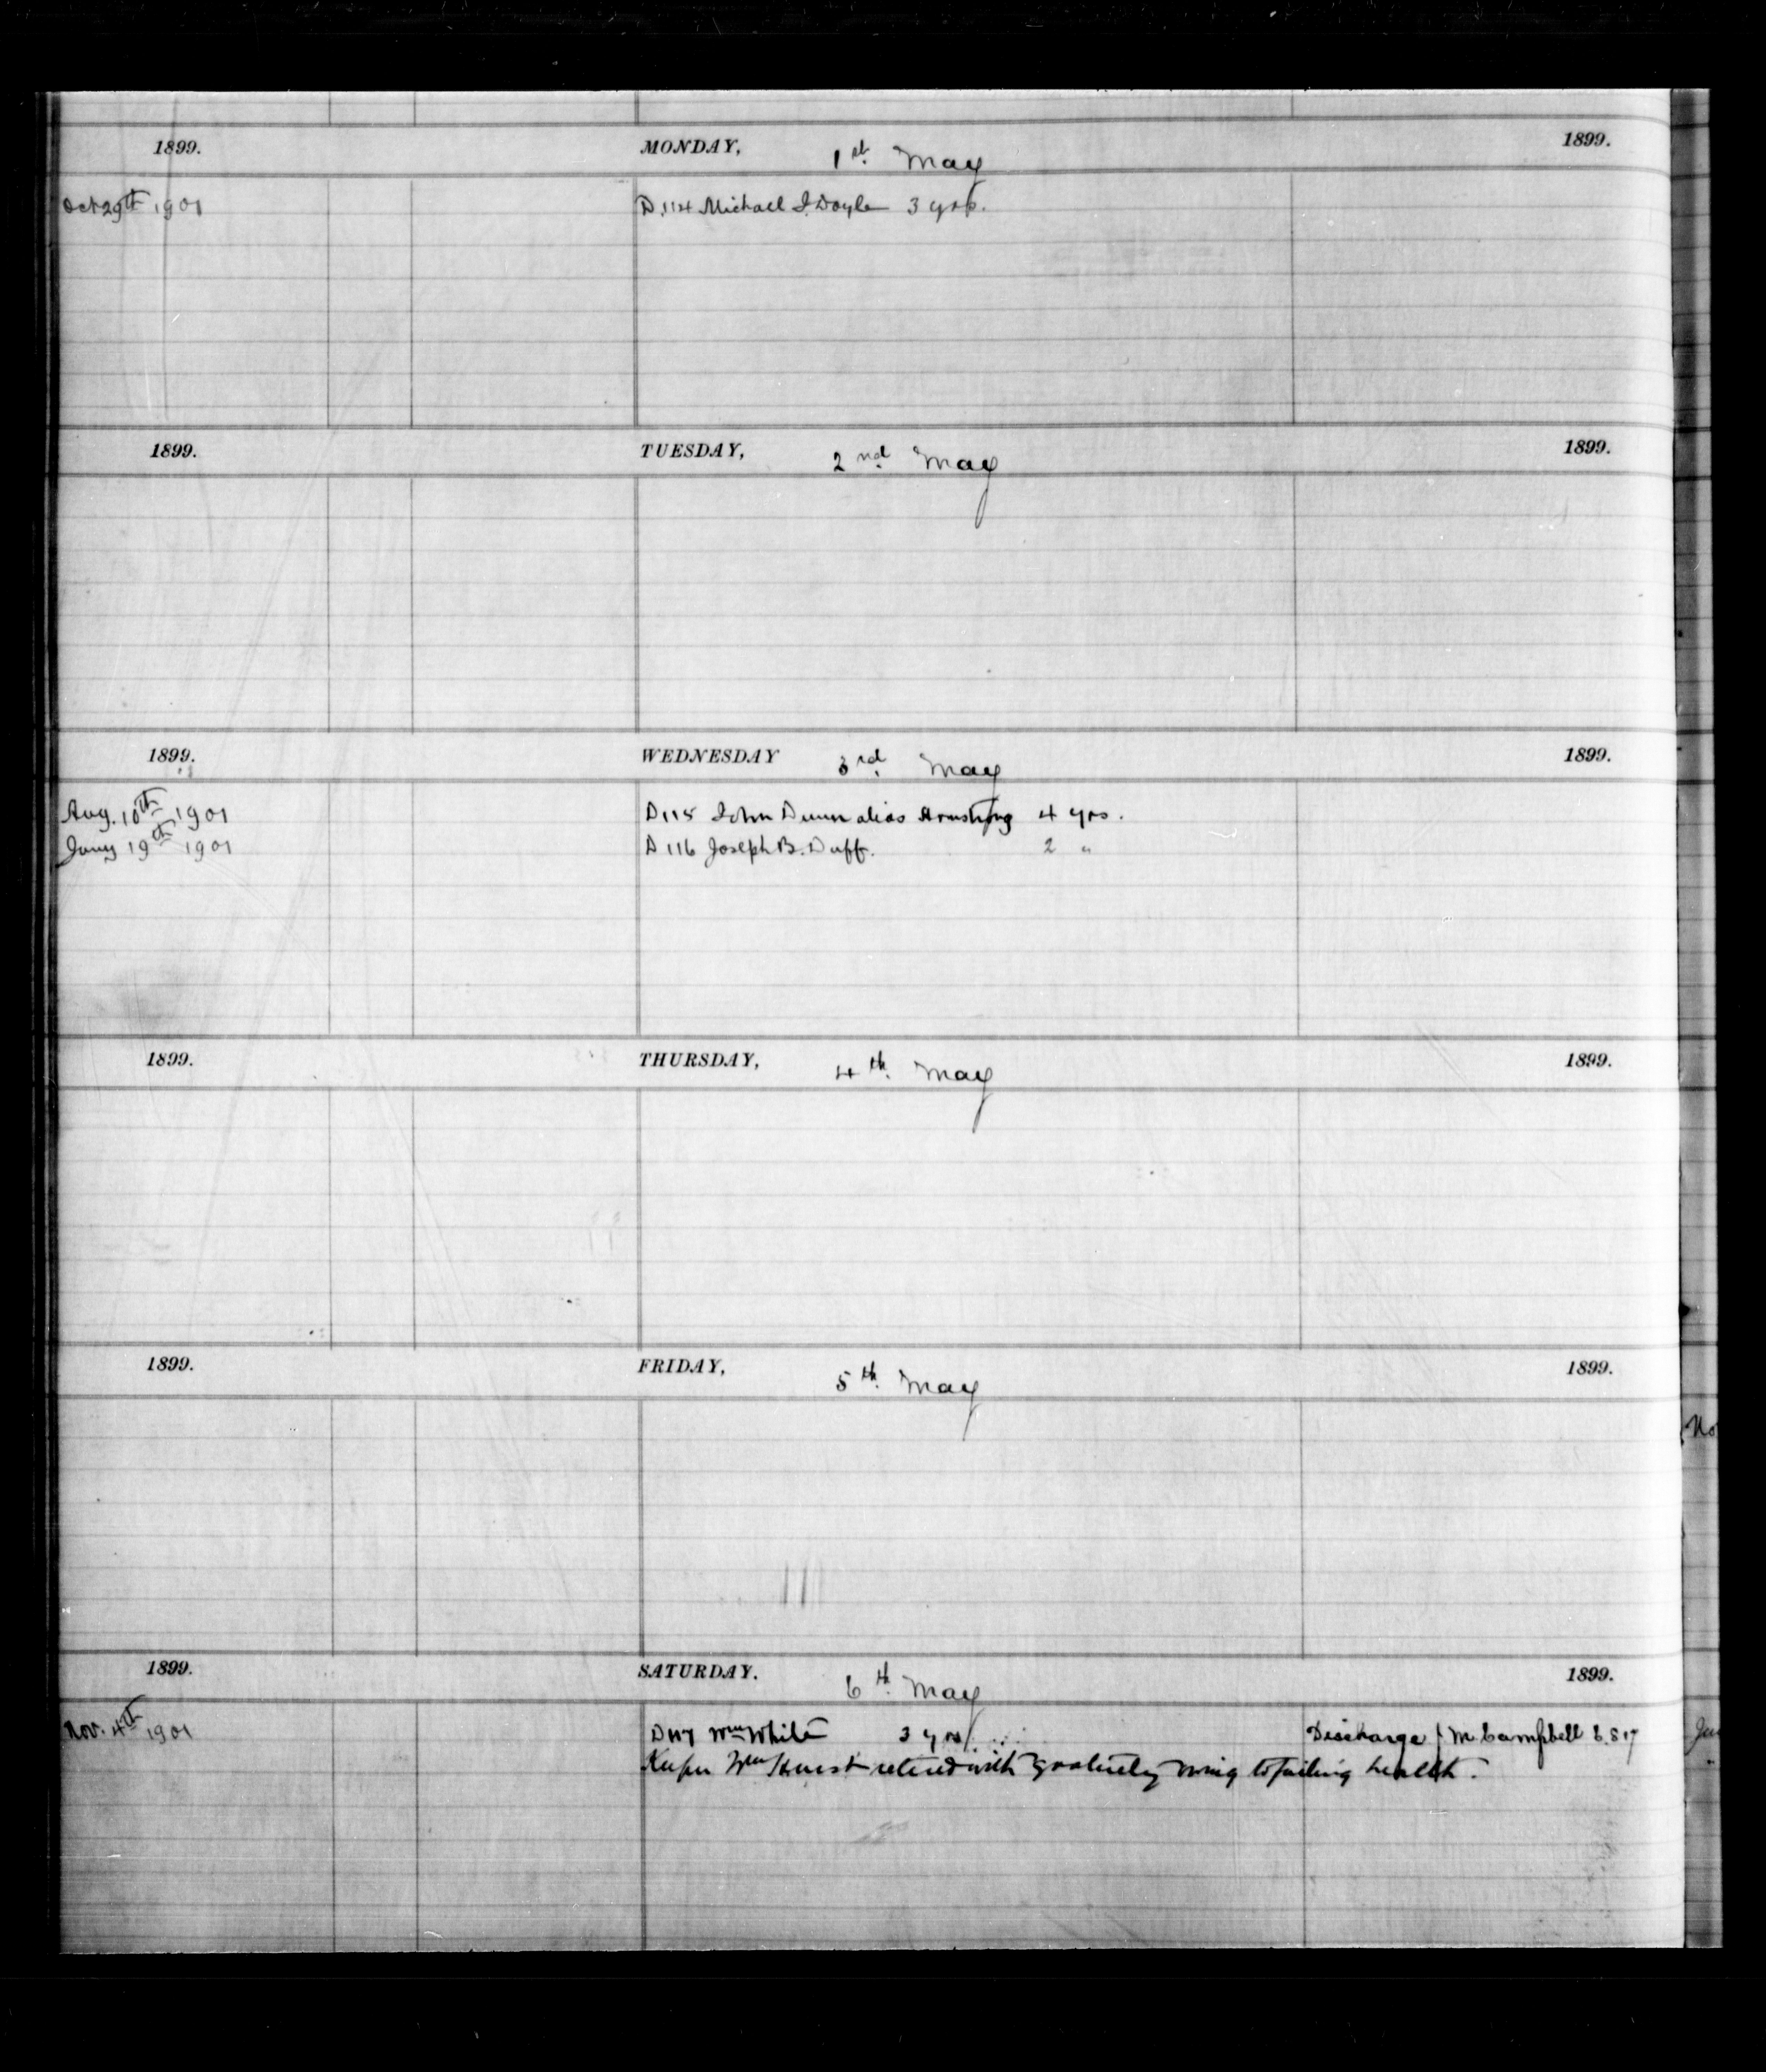 1899. MONDAY, 1st. May 1899.
Oct 29th 1901 D.114 Michael J. Doyle 3 yrs.
1899. TUESDAY, 2nd. May 1899.
1899. WEDNESDAY 3rd. May 1899.
Aug. 10th 1901 D115 John Dunn alias Armstrong 4 yrs.
Jany 19th 1901 D116 Joseph B. Duff. 2 "
1899. THURSDAY, 4th. May 1899.
1899. FRIDAY, 5th. May 1899.
No
1899. SATURDAY. 6th. May 1899.
Nov. 4th 1901 D117 Wm White 3 yrs. Discharge M. Campbell
Keeper Wm Hurst retired with gratuity owing to failing health.